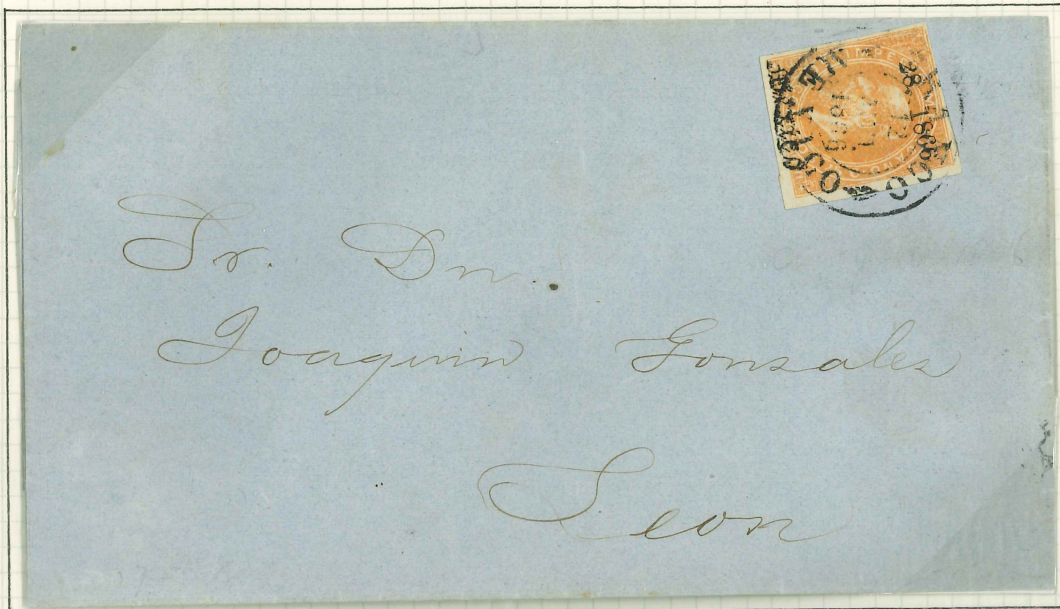 28. 1866
MEXICO
Sr. Dn.
Joaquin Gonzales
Leon